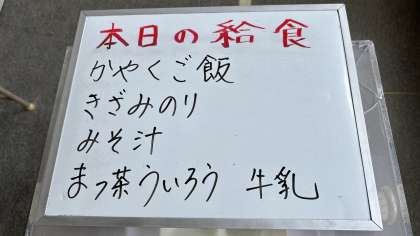 本日の給食
かやくご飯
きざみのり
みそ汁
まっ茶ういろう 牛乳